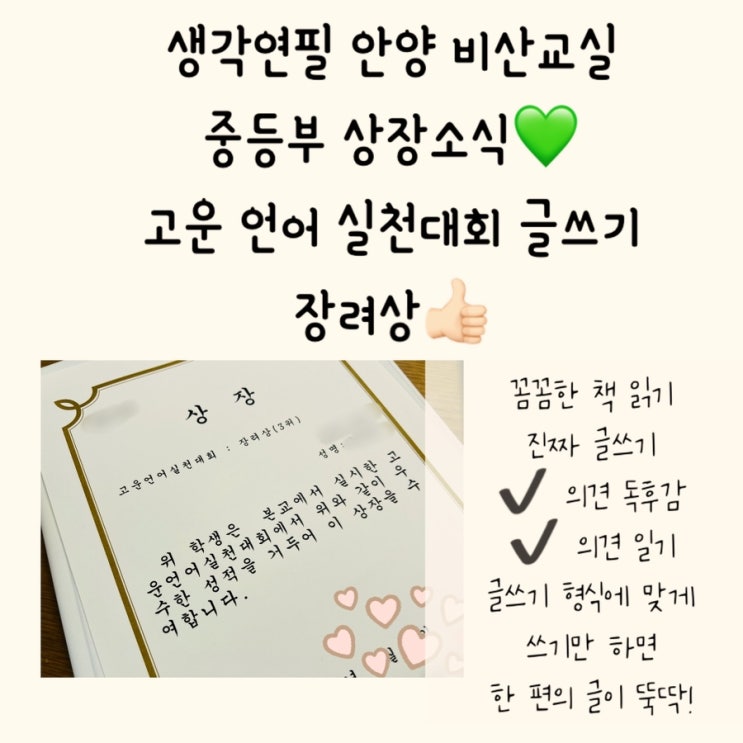 생각연필 안양 비산교실
중등부 상장소식💚
고운 언어 실천대회 글쓰기
장려상👍🏻
상 장
고운언어실천대회 : 장려상(3위)
성명:
위 학생은 본교에서 실시한 고
운언어실천대회에서 위와 같이 우
수한 성적을 거두어 이 상장을 수
여합니다.
꼼꼼한 책 읽기
진짜 글쓰기
✔ 의견 독후감
✔ 의견 일기
글쓰기 형식에 맞게
쓰기만 하면
한 편의 글이 뚝딱!